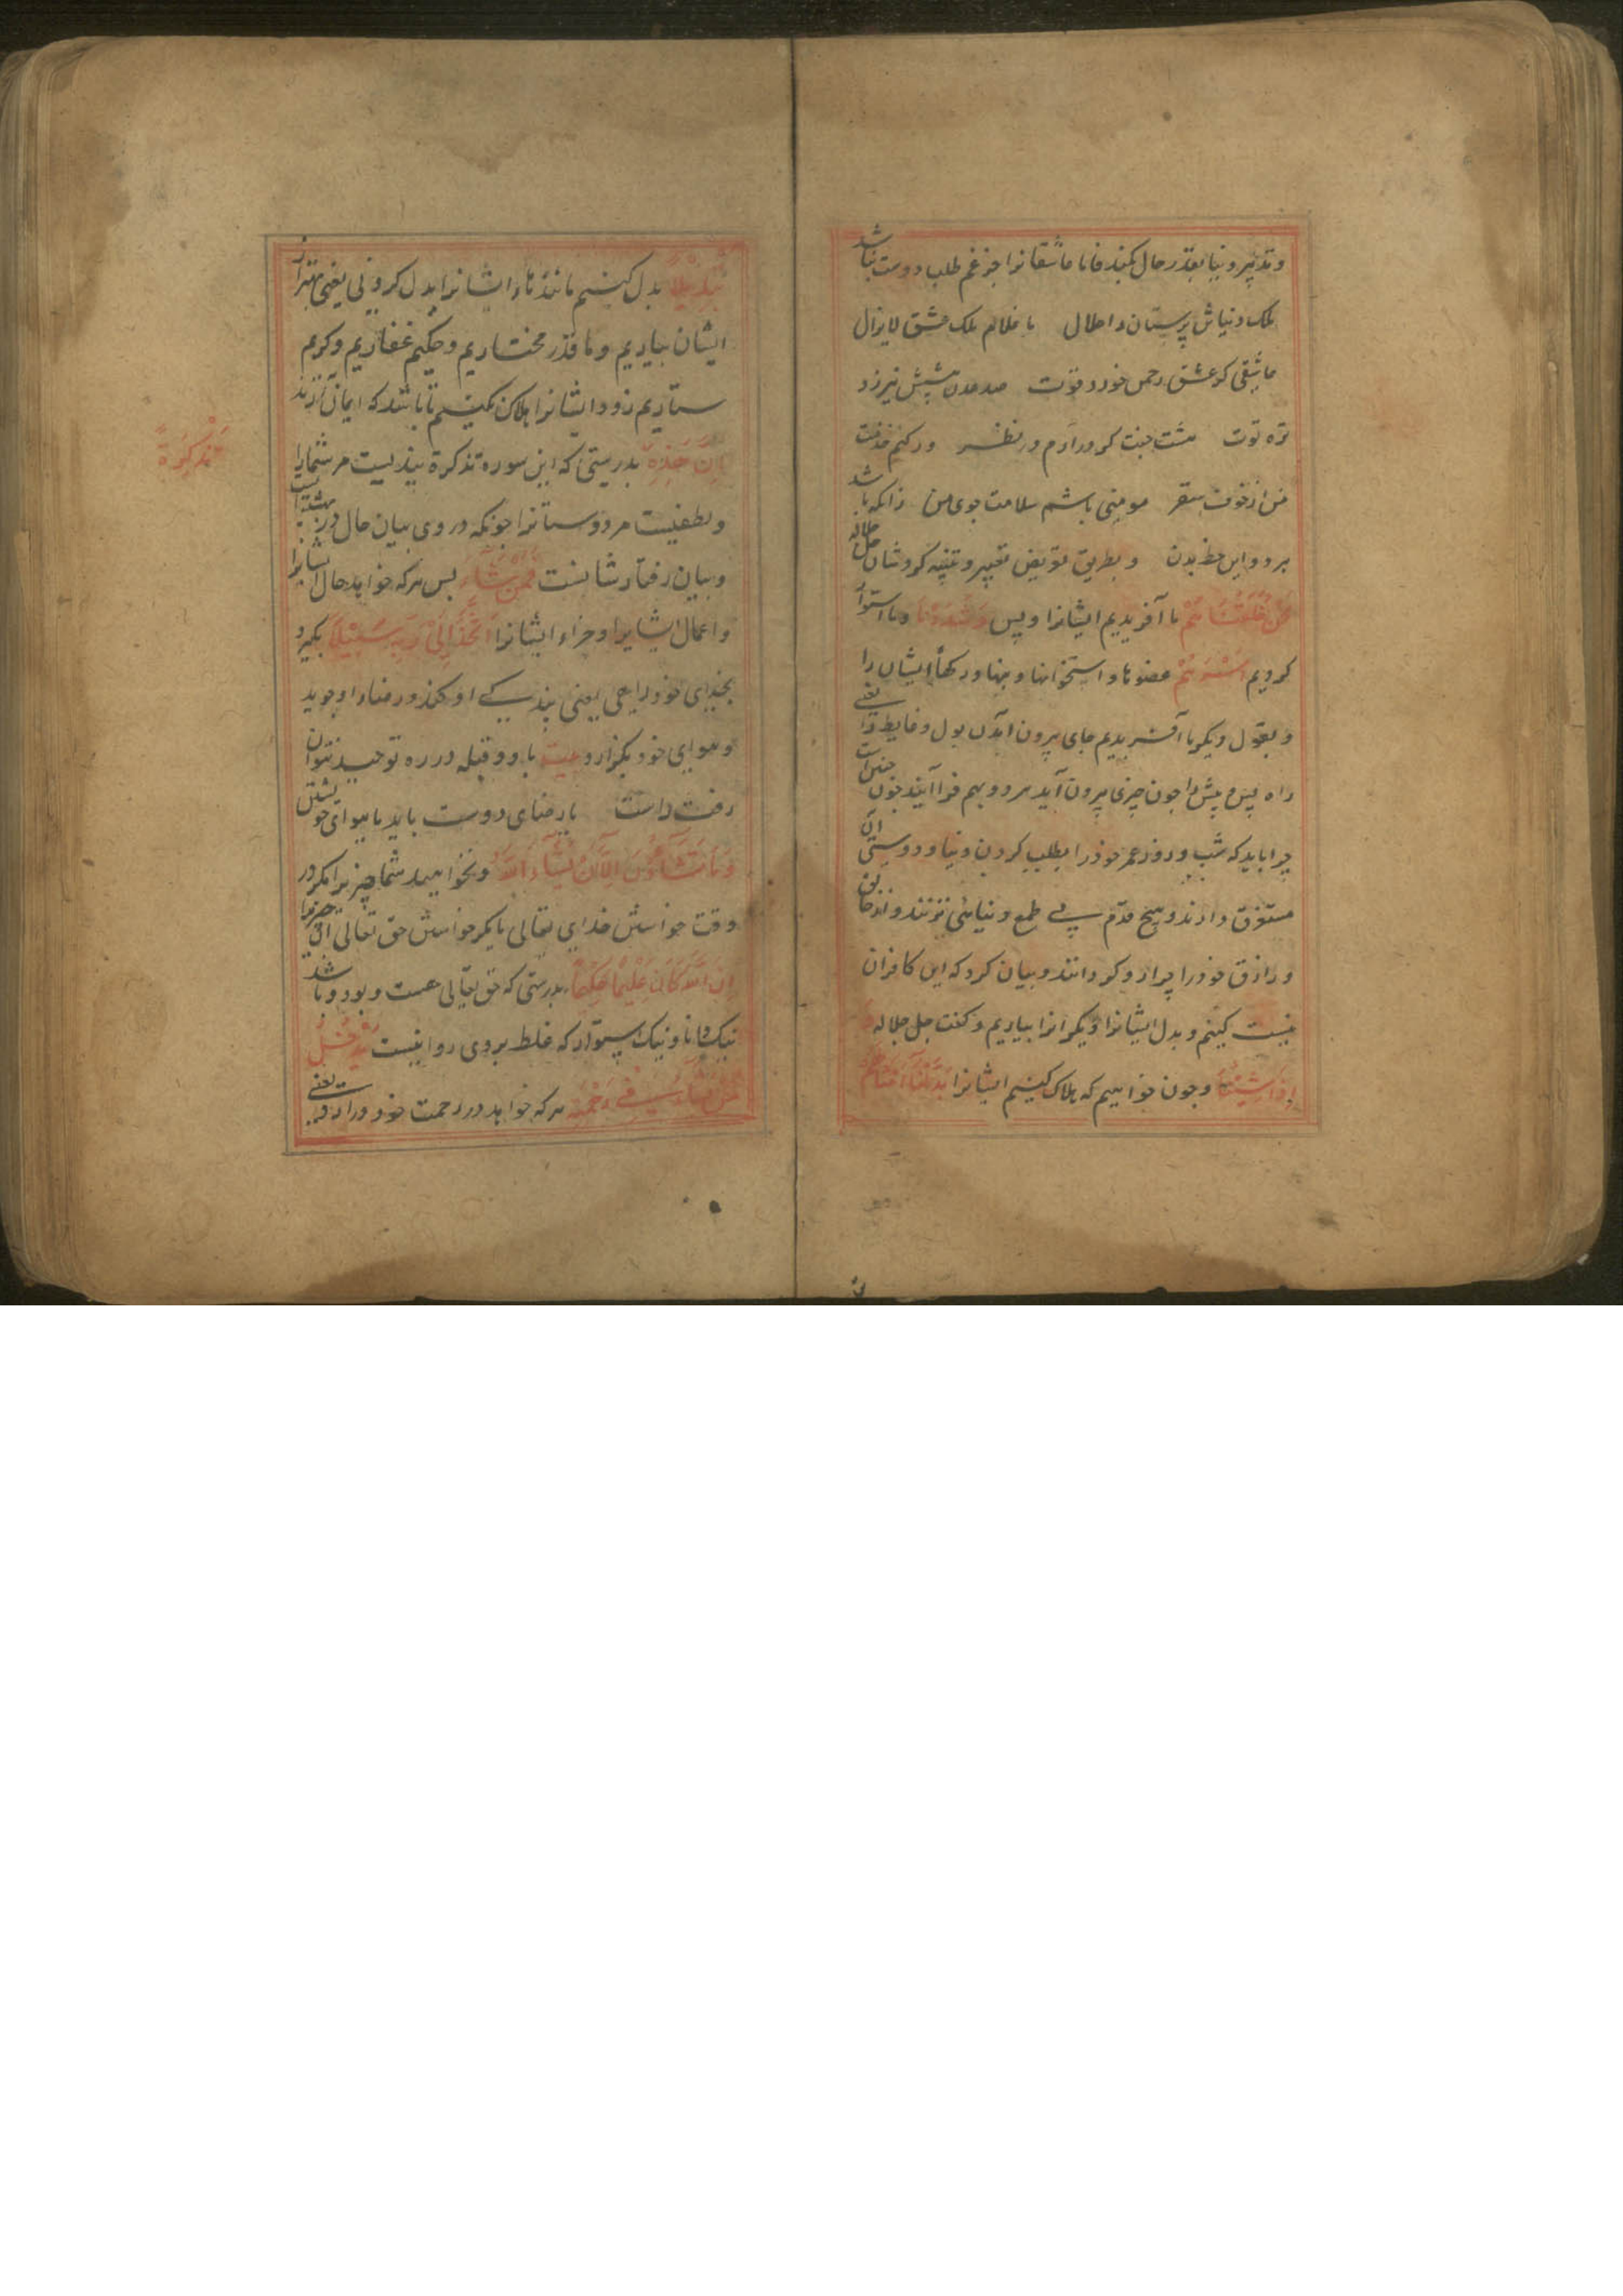 وتدبیر دنیا بقدر حال کنند فاما عاشقانرا جز غم طلب دوست نباشد
ملک دنیا تن پرستان را حلال    ما غلام ملک عشق لایزال
عاشقی کز عشق رحمن خورد قوت    صد بدن پیشش نیرزد
تره توت    هشت جنت گر در آرم در نظر    ور کنم خدمت
من از خوف سقر    مومنی باشم سلامت جوی من    زانکه باشد
هر دو این حظ بدن    و بطریق تعریض تعییر و تنبیه کردشان جل جلاله
نَحْنُ خَلَقْنَاهُمْ ما آفریدیم ایشانرا و بس وَشَدَدْنَا وما استوار
کردیم اَسْرَهُمْ عضوها و استخوانها و پیها و رکها ایشان را
و بقول دیگر ما آفریدیم جای بیرون آمدن بول و غایط را یعنی
راه پس و پیش را چون چیزی بیرون آید هر دو بهم فرا آیند چون چنین است
چرا باید که شب و روز عمر خود را بطلب کردن دنیا و دوستی آن
مستغرق دارند و هیچ قدم بی طمع دنیائی نزنند و از خالق
و رازق خود را چرا رو گردانند و بیان کرد که این کافران
نیست کنیم و بدل ایشانرا دیگرانرا بیاریم و گفت جل جلاله وَ
اِذَا شِئْنَا و چون خواهیم که هلاک کنیم ایشانرا بَدَّلْنَا اَمْثَالَهُمْ
تَبْدِیْلًا بدل کنیم مانندهاء ایشانرا بدل کردنی یعنی بهتر از
ایشان بیاریم و ما قدر مختاریم و حکیم غفاریم و کریم
ستاریم زود ایشانرا هلاک نکنیم تا باشد که ایمان آرند
اِنَّ هٰذِهٖ بدرستی که این سوره تذکرة پندیست مر شما را
تَذْكِرَةٌ
و لطفیست مر دوستانرا چونکه در وی بیان حال بهشتیانست
و بیان رفتار شانست فَمَنْ شَاءَ پس هر که خواهد حال ایشانرا
و اعمال ایشانرا و جزاء ایشانرا اتَّخَذَ اِلٰی رَبِّهٖ سَبِیْلًا بگیرد
بخدای خود راهی یعنی بندگی او کند و رضاء او جوید
و هوای خود بگذارد بیت با دو قبله در ره توحید نتوان
رفت راست    یا رضای دوست باید یا هوای خویشتن
وَمَا تَشَاؤُنَ اِلَّا اَنْ یَّشَاءَ اللهُ و نخواهید شما چیزیرا مگر در
وقت خواستن خدای تعالی یا مگر خواستن حق تعالی آن چیز را
اِنَّ اللهَ كَانَ عَلِیْمًا حَكِیْمًا بدرستی که حق تعالی هست و بود و باشد
نیک دانا و نیک استوار که غلط بروی روا نیست یُدْخِلُ
مَنْ یَّشَاءُ فِیْ رَحْمَتِهٖ هر که خواهد در رحمت خود در آرد یعنی